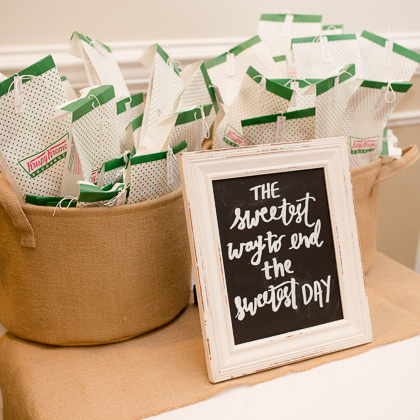 Krispy Kreme
Krispy Kreme
THE
sweetest
way to end
the
sweetest DAY